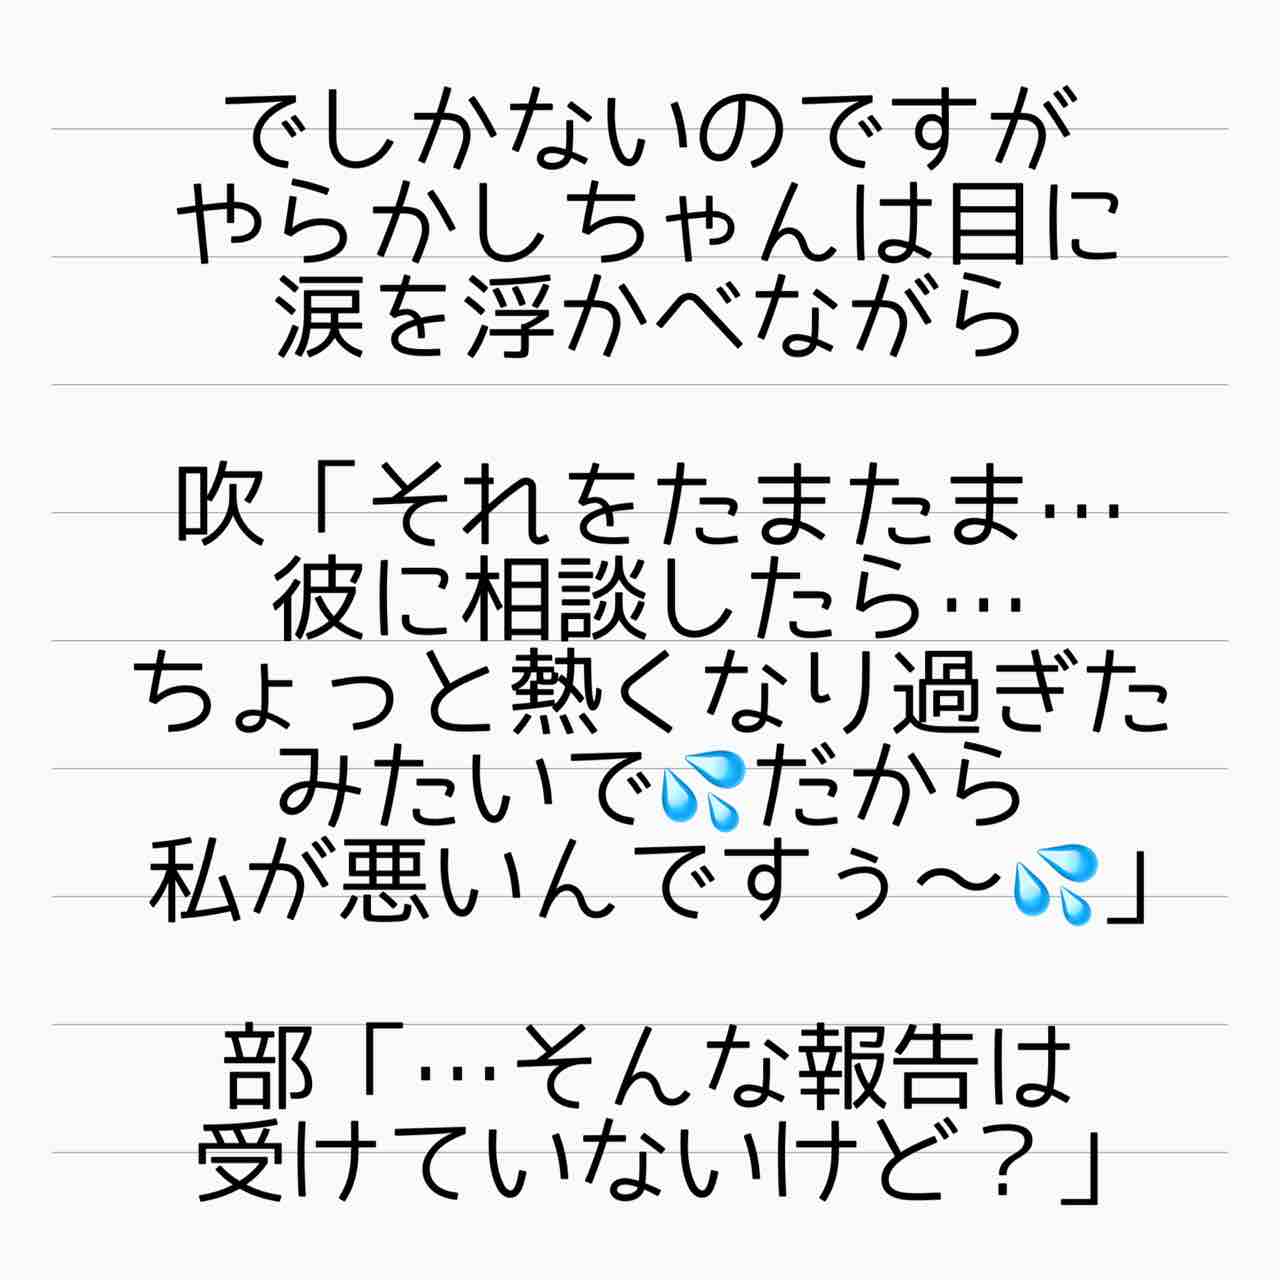 でしかないのですが
やらかしちゃんは目に
涙を浮かべながら
吹「それをたまたま…
彼に相談したら…
ちょっと熱くなり過ぎた
みたいで💦だから
私が悪いんですぅ〜💦」
部「…そんな報告は
受けていないけど？」